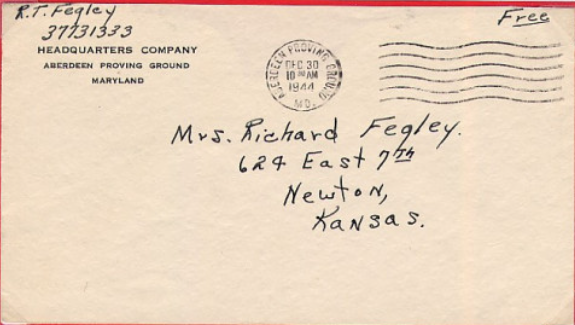 R.T. Fegley
Free
37731333
HEADQUARTERS COMPANY
ABERDEEN PROVING GROUND
MARYLAND
ABERDEEN PROVING GROUND
DEC 30
10 00 AM
1944
MD.
Mrs. Richard Fegley.
624 East 7th
Newton,
Kansas.